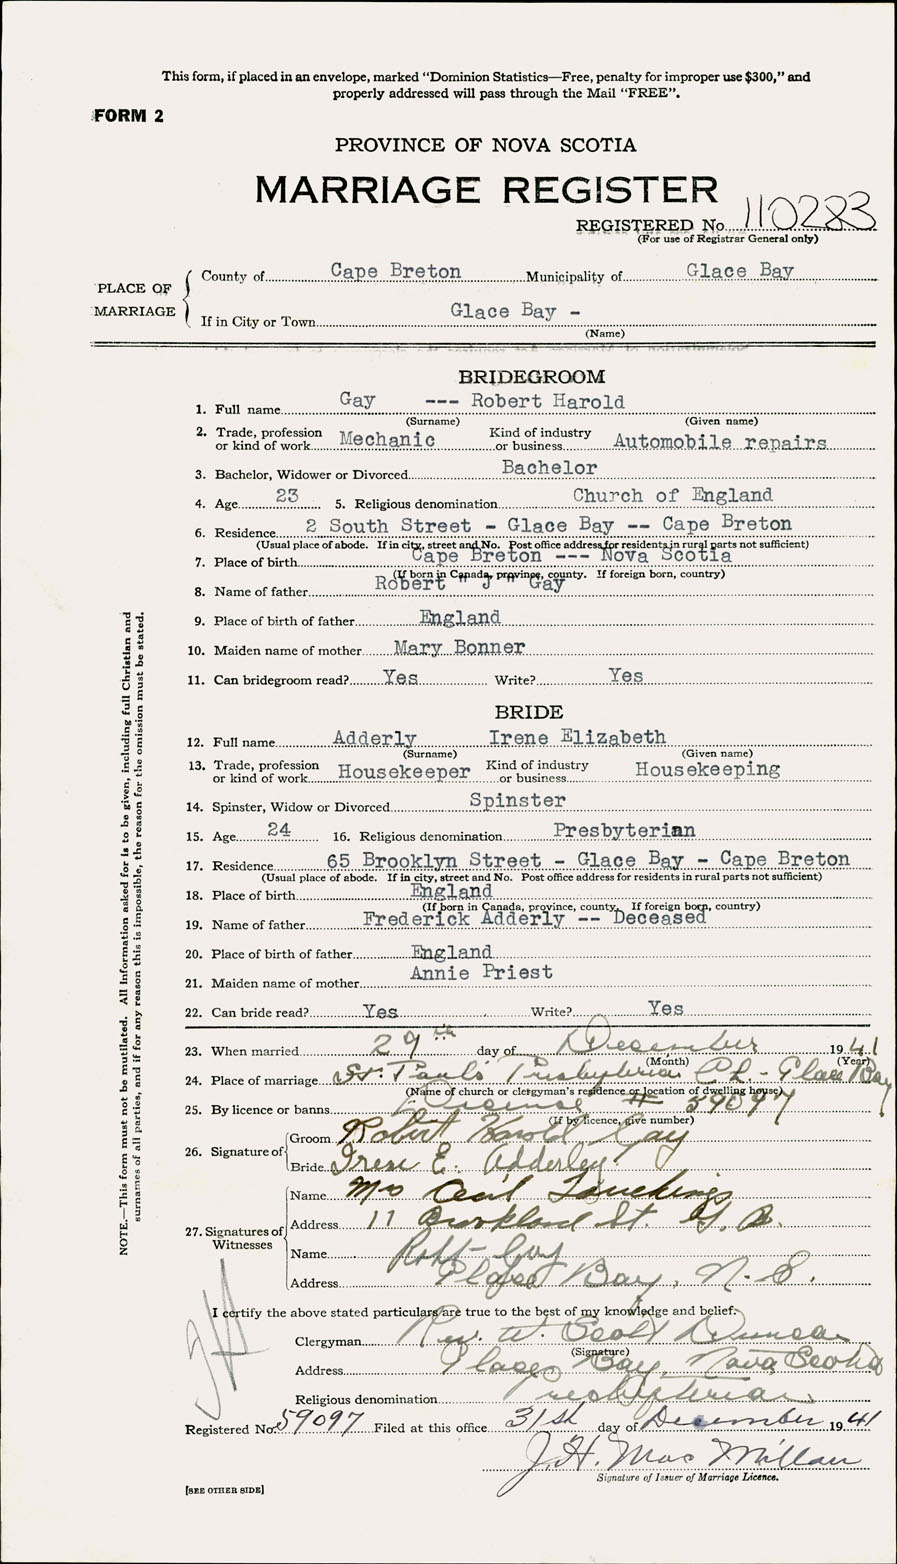 This form, if placed in an envelope, marked "Dominion Statistics—Free, penalty for improper use $300," and
properly addressed will pass through the Mail "FREE".
FORM 2
PROVINCE OF NOVA SCOTIA
MARRIAGE REGISTER
REGISTERED No. 110283
(For use of Registrar General only)
PLACE OF MARRIAGE
County of Cape Breton Municipality of Glace Bay
If in City or Town Glace Bay -
(Name)
BRIDEGROOM
1. Full name Gay --- Robert Harold
(Surname) (Given name)
2. Trade, profession or kind of work Mechanic Kind of industry or business Automobile repairs
3. Bachelor, Widower or Divorced Bachelor
4. Age 23 5. Religious denomination Church of England
6. Residence 2 South Street - Glace Bay -- Cape Breton
(Usual place of abode. If in city, street and No. Post office address for residents in rural parts not sufficient)
7. Place of birth Cape Breton --- Nova Scotia
(If born in Canada, province, county. If foreign born, country)
8. Name of father Robert "J" Gay
9. Place of birth of father England
10. Maiden name of mother Mary Bonner
11. Can bridegroom read? Yes Write? Yes
BRIDE
12. Full name Adderly Irene Elizabeth
(Surname) (Given name)
13. Trade, profession or kind of work Housekeeper Kind of industry or business Housekeeping
14. Spinster, Widow or Divorced Spinster
15. Age 24 16. Religious denomination Presbyterian
17. Residence 65 Brooklyn Street - Glace Bay - Cape Breton
(Usual place of abode. If in city, street and No. Post office address for residents in rural parts not sufficient)
18. Place of birth England
(If born in Canada, province, county. If foreign born, country)
19. Name of father Frederick Adderly -- Deceased
20. Place of birth of father England
21. Maiden name of mother Annie Priest
22. Can bride read? Yes Write? Yes
23. When married 29th day of December 1941
(Month) (Year)
24. Place of marriage St. Paul's Presbyterian Ch. - Glace Bay
(Name of church or clergyman's residence or location of dwelling house)
25. By licence or banns License # 59097
(If by licence, give number)
26. Signature of
Groom Robert Harold Gay
Bride Irene E. Adderley
27. Signatures of Witnesses
Name Mrs Cecil
Address 11 Brookland St. G. B.
Name Robt Gay
Address Glace Bay, N. S.
I certify the above stated particulars are true to the best of my knowledge and belief.
Clergyman Rev. W. Scott Duncan
(Signature)
Address Glace Bay, Nova Scotia
Religious denomination Presbyterian
Registered No. 59097 Filed at this office 31st day of December 1941
J. H. Mac Millan
Signature of Issuer of Marriage Licence.
[SEE OTHER SIDE]
NOTE.—This form must not be mutilated. All Information asked for is to be given, including full Christian and
surnames of all parties, and if for any reason this is impossible, the reason for the omission must be stated.